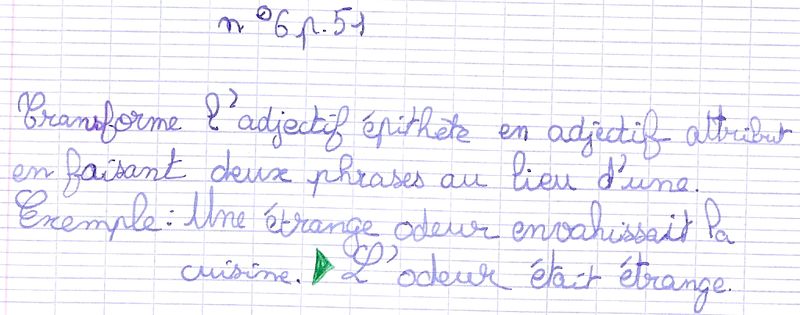 n°6 p. 51
Transforme l'adjectif épithète en adjectif attribut
en faisant deux phrases au lieu d'une.
Exemple : Une étrange odeur envahissait la
cuisine. ▶ L'odeur était étrange.